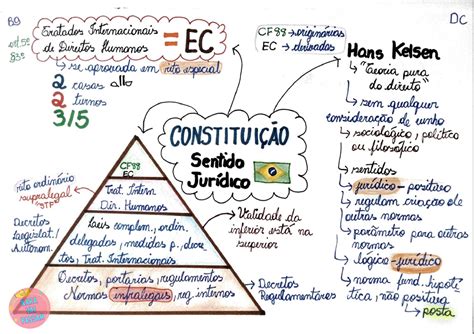 B9
art.5º
§3º
Tratados Internacionais
de Direitos Humanos = EC
↳ se aprovado em rito especial
2 casas
2 turnos
3/5
CF88 → originárias
EC → derivadas
DC
CONSTITUIÇÃO
Sentido
Jurídico
Hans Kelsen
↳ "Teoria pura
do direito"
↳ sem qualquer
consideração de cunho
↳ sociológico, político
ou filosófico
↳ sentidos
↳ jurídico-positivo
↳ regulam criação de
outras normas
↳ parâmetro para outras
normas
↳ lógico-jurídico
↳ norma fund. hipoté
tica, não positiva
↳ posta
CF88
EC
Trat. Intern
Dir. Humanos
Leis complem., ordin.
delegadas, medidas p., decre
tos, Trat. Internacionais
Decretos, portarias, regulamentos
Normas infralegais, reg. internos
rito ordinário
supralegal
"STF"
Decretos
Legislat./
Autônom.
↳ Validade da
inferior está na
superior
Decretos
Regulamentares